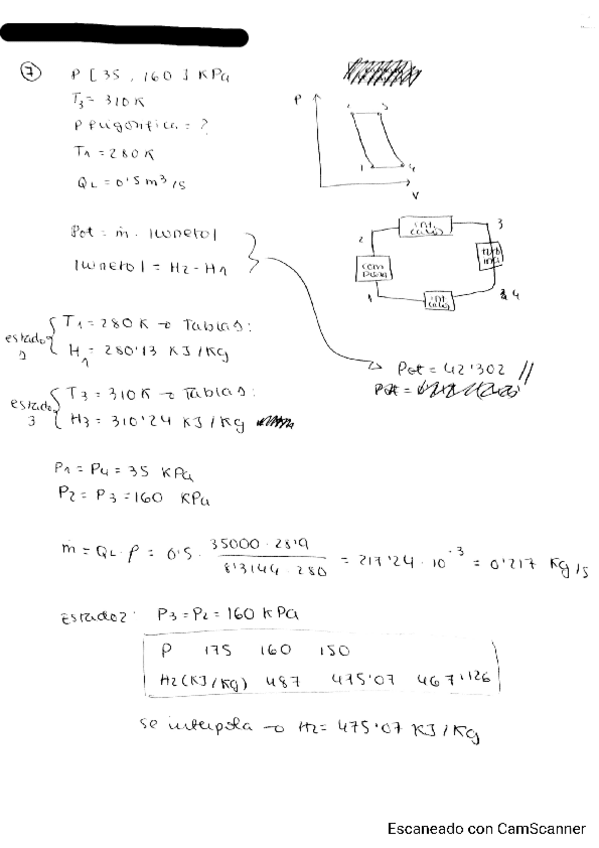 7
P [35, 160] KPa
T3 = 310K
P frigorífica = ?
T1 = 280K
QL = 0'5 m³/s
P
V
1
3
4
Pot = ṁ · |wneto|
|wneto| = H2 - H1
2
3
int calor
com presor
turb ina
1
int calor
4
estado 1
T1 = 280K → Tablas:
H1 = 280'13 KJ/Kg
Pot = 42'302 //
Pot =
estado 3
T3 = 310K → Tablas:
H3 = 310'24 KJ/Kg
P1 = P4 = 35 KPa
P2 = P3 = 160 KPa
ṁ = QL · ρ = 0'5 · 35000 · 28'9 / 8'3144 · 280 = 217'24 · 10⁻³ = 0'217 Kg/s
Estado 2: P3 = P2 = 160 KPa
P 175 160 150
H2 (KJ/Kg) 487 475'07 467'126
se interpola → H2 = 475'07 KJ/Kg
Escaneado con CamScanner